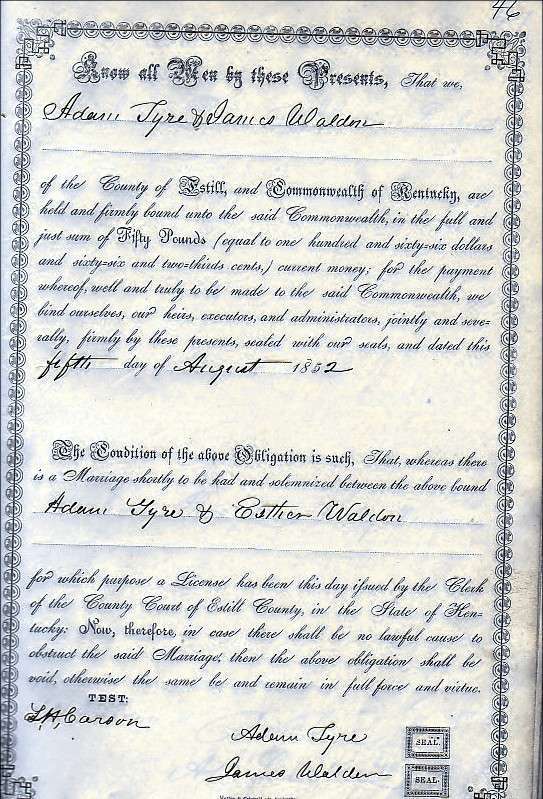 46
Know all Men by these Presents, That we,
Adam Tyre & James Waldon
of the County of Estill, and Commonwealth of Kentucky, are
held and firmly bound unto the said Commonwealth, in the full and
just sum of Fifty Pounds (equal to one hundred and sixty-six dollars
and sixty-six and two-thirds cents,) current money; for the payment
whereof, well and truly to be made to the said Commonwealth, we
bind ourselves, our heirs, executors, and administrators, jointly and seve-
rally, firmly by these presents, sealed with our seals, and dated this
fifth day of August 1852
The Condition of the above Obligation is such, That, whereas there
is a Marriage shortly to be had and solemnized between the above bound
Adam Tyre & Esther Waldon
for which purpose a License has been this day issued by the Clerk
of the County Court of Estill County, in the State of Ken-
tucky: Now, therefore, in case there shall be no lawful cause to
obstruct the said Marriage, then the above obligation shall be
void, otherwise the same be and remain in full force and virtue.
TEST:
Carson
Adam Tyre SEAL
James Waldon SEAL